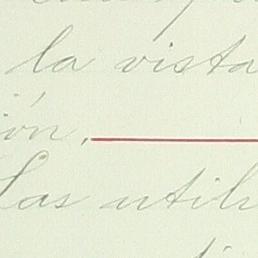 la vista
ión,
Las util